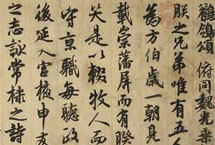 鶺鴒頌 俯同魏光乘
朕之兄弟唯有五人
為方伯歲一朝見
載崇藩屏而有睽
笑是以輟牧人而
守京職每聽政
後延入宮掖申友
之志詠常棣之詩